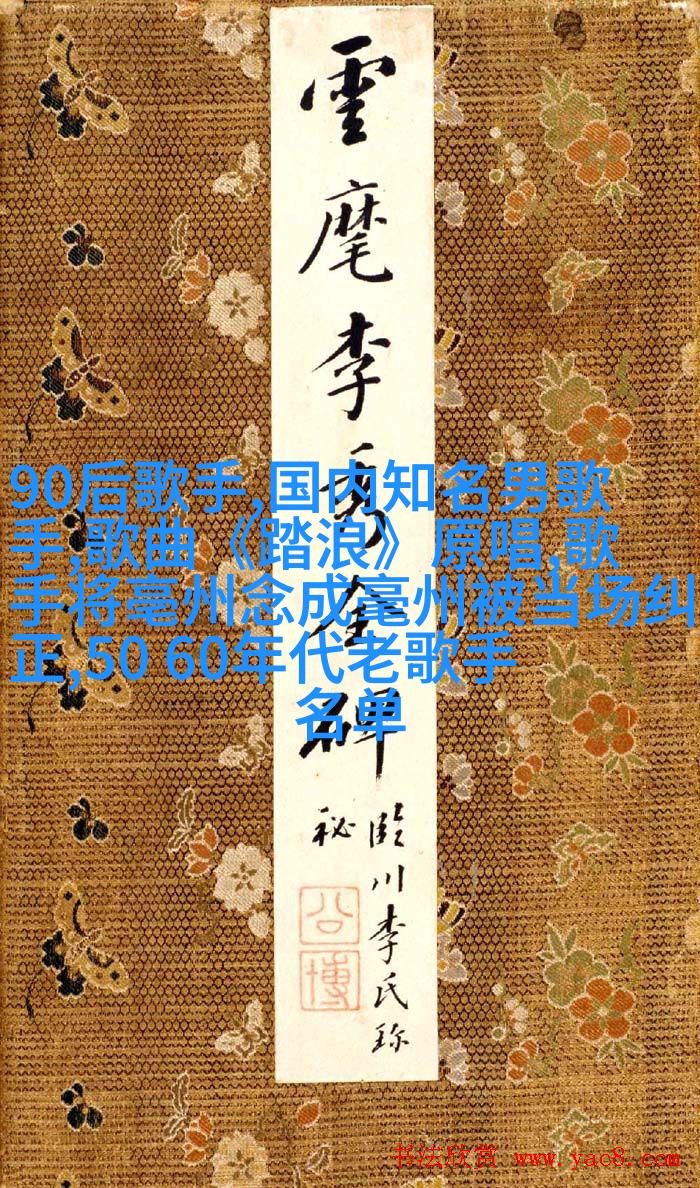 雲麾李秀全碑
臨川李氏珍
秘
公博
90后歌手,国内知名男歌
手,歌曲《踏浪》原唱,歌
手将亳州念成毫州被当场纠
正,50 60年代老歌手
名单
书法欣赏 www.yac8.com